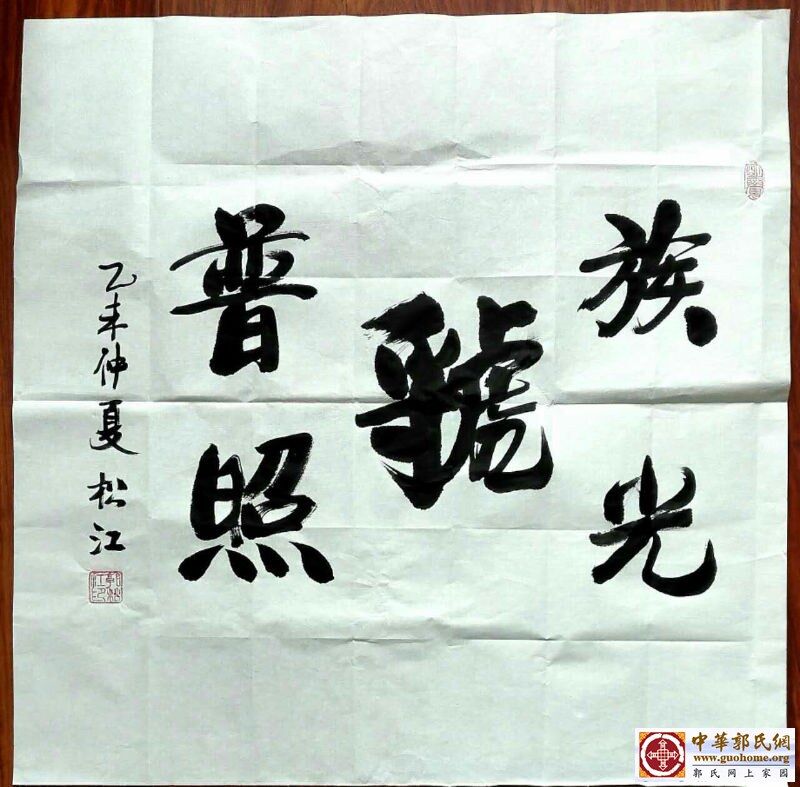 族光
虢
普照
乙未仲夏 松江
中華郭氏網
www.guohome.org
郭氏网上家园